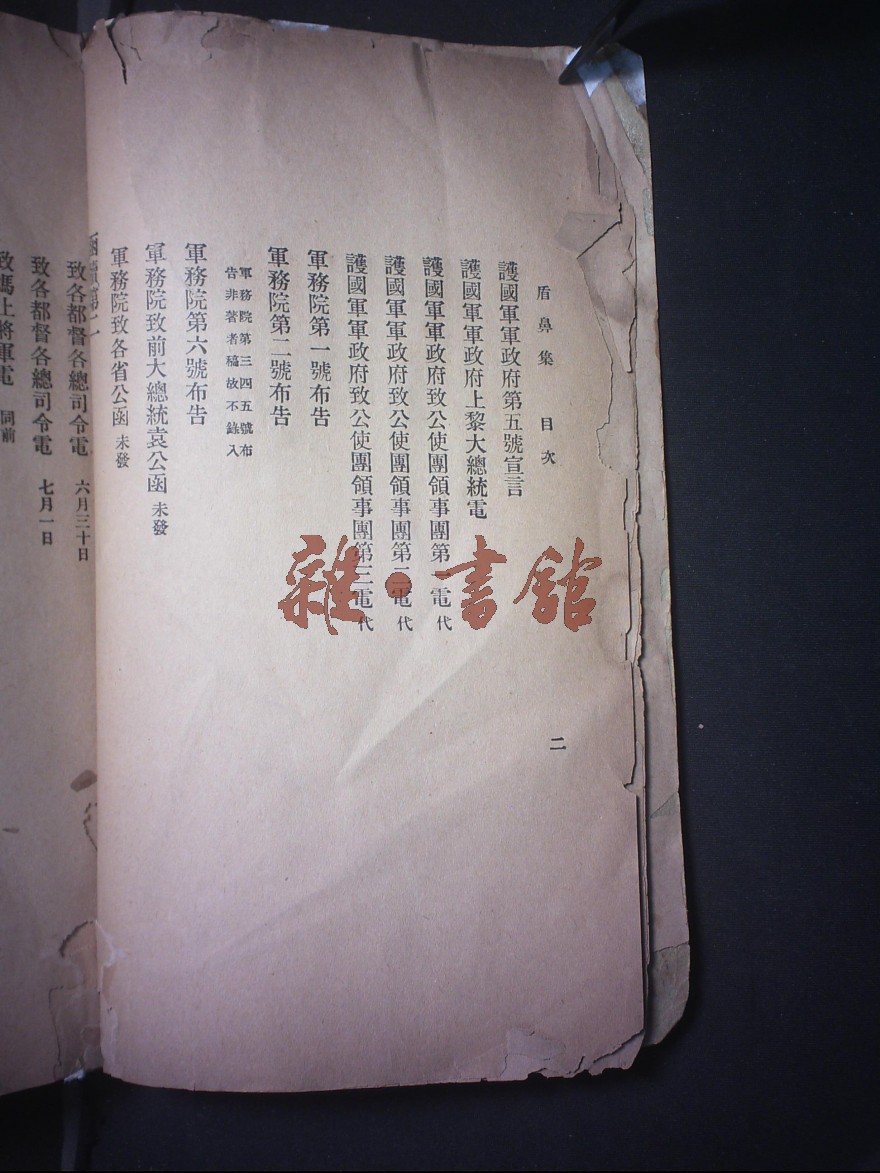 盾鼻集 目次
二
護國軍軍政府第五號宣言
護國軍軍政府上黎大總統電
護國軍軍政府致公使團領事團第一電 代
護國軍軍政府致公使團領事團第二電 代
護國軍軍政府致公使團領事團第三電 代
軍務院第一號布告
軍務院第二號布告
軍務院第三四五號布
告非著者稿故不錄入
軍務院第六號布告
軍務院致前大總統袁公函 未發
軍務院致各省公函 未發
致各都督各總司令電 六月三十日
致各都督各總司令電 七月一日
致馮上將軍電 同前
雜·書館